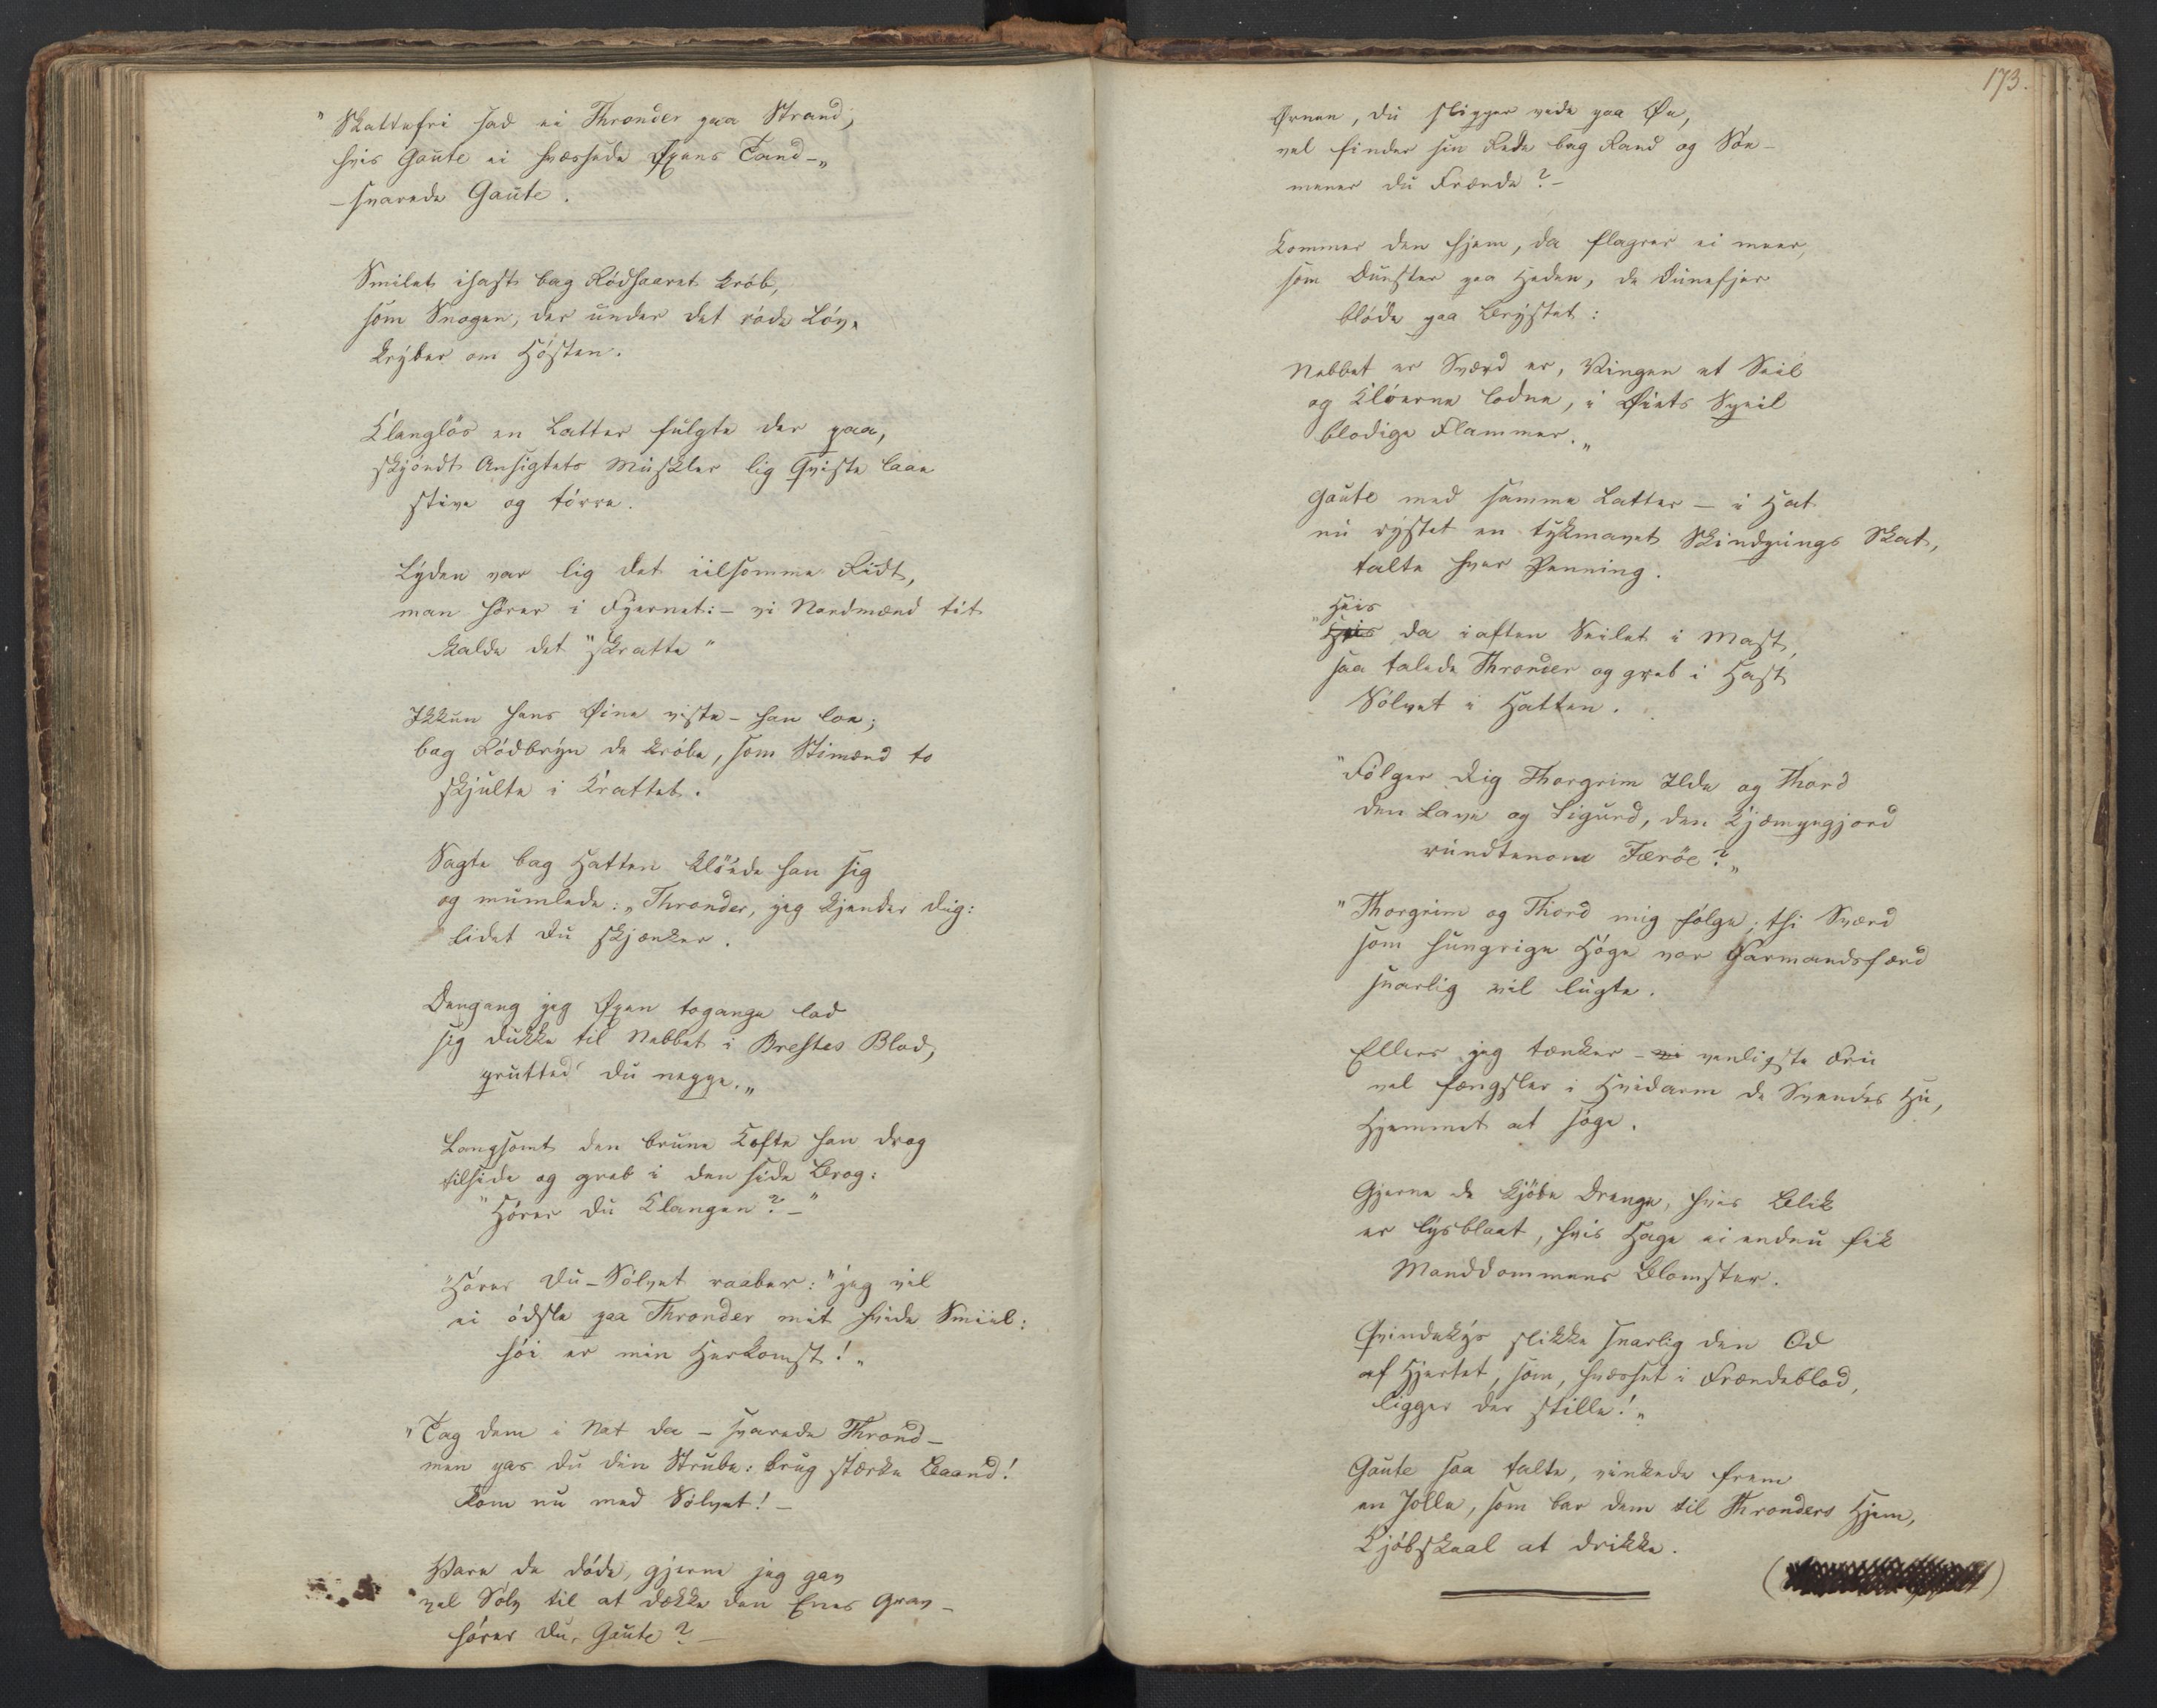 "Skattefri sad ei Thronder paa Strand,
hvis Gaute ei hvæssede Øxens Tand –„
– svarede Gaute.
Smilet ihast bag Rödhaaret kröb,
som Snogen, der under det röde Löv,
kryber om Hösten.
Klanglös en Latter fulgte der paa,
skjöndt Ansigtets Muskler lig Qviste laae
stive og törre.
Lyden var lig det iilsomme Ridt,
man hörer i Fjernet: – vi Nordmænd tit
kalde det "Skratte"
Ikkun hans Øine viste – han loe;
bag Rödbryn de kröbe, som Stimænd to
skjulte i Krattet.
Sagte bag Hatten klöede han sig
og mumlede: „Thronder, jeg kjender dig:
lidet du skjænker.
Dengang jeg Øxen togange lod
sig dukke til Nebbet i Brestes Blod,
prutted' du neppe.„
Langsomt den brune Kofte han drog
tilside og greb i den side Brog:
"Hörer du Klangen? –"
"Hörer du – Sölvet raaber: "jeg vil
ei ödsle paa Thronder mit hvide Smiil:
höi er min Herkomst!„
"Tag dem i Nat da – svarede Thrond –
men pas du din Strube: brug stærke Baand!
Kom nu med Sölvet! –
Vare de döde, gjerne jeg gav
vel Sölv til at dække den Enes Grav –
hörer du, Gaute? –
173.
Ørnen, du slipper vede paa Øe,
vel finder sin Rede bag Rand og Söe –
mener du Frænde? –
Kommer den hjem, da flagrer ei meer,
som Dunster paa Heden, de Dunefjer
blöde paa Brystet:
Nebbet er Sværd er, Vingen et Seil
og Klöerne lodne, i Øiets Speil
blodige Flammer.„
Gaute med samme Latter – i Hat
nu rystet en tykmavet Skindpungs Skat,
talte hver Penning.
Heis
"Heis da iaften Seilet i Mast,
saa talede Thronder og greb i Hast
Sölvet i Hatten.
"Fölger dig Thorgrim Ilde og Thord
den Lave og Sigurd, den Kjæmpegjord
rundtenom Færöe?„
"Thorgrim og Thord mig fölge; thi Sværd
som hungrige Höge vor Garmandsfærd
snarlig vil lugte.
Ellers jeg tænker – vi venligste Fru
vel fængsler i Hvidarm de Svendes Hu,
Hjemmet at söge.
Gjerne de kjöbe Drenge, hvis Blik
er lysblaat, hvis Hage ei endnu fik
Manddommens Blomster.
Qvindekys slikke snarlig den Od
af Hjertet, som, hvæsset i Frændeblod,
ligger der stille!„
Gaute saa talte, vinkede frem
en Jolle, som bar dem til Thronders Hjem,
Kjöbskaal at drikke.